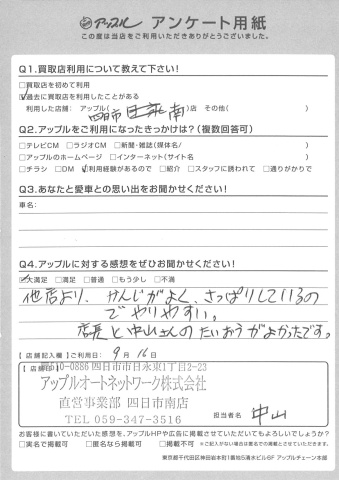 アップル アンケート用紙
この度は当店をご利用いただきありがとうございました。
Q1.買取店利用について教えて下さい！
□買取店を初めて利用
☑過去に買取店を利用したことがある
利用した店舗: アップル( 四日市日永南 )店 その他( )
Q2.アップルをご利用になったきっかけは？(複数回答可)
□テレビCM □ラジオCM □新聞・雑誌(媒体名/ )
□アップルのホームページ □インターネット(サイト名 )
□チラシ □DM ☑利用経験があるので □紹介 □スタッフに誘われて □通りがかりで
Q3.あなたと愛車との思い出をお聞かせください！
車名:
Q4.アップルに対する感想をぜひお聞かせください！
☑大満足 □満足 □普通 □もう少し □不満
他店より、かんじがよく、さっぱりしているの
でやりやすい。
店長と中山さんのたいおうがよかったです。
【店舗記入欄】ご利用日: 9月16日
【店舗印】
〒510-0886 四日市市日永東1丁目2-23
アップルオートネットワーク株式会社
直営事業部 四日市南店
TEL 059-347-3516
担当者名 中山
お客様に書いていただいた感想を、アップルHPや広告に掲載させていただいてもよろしいでしょうか？
□実名で掲載可 □匿名なら掲載可 □掲載不可 ※ご記入がない場合は匿名にて掲載させていただく事がございます。
東京都千代田区神田岩本町1番地5清水ビル6F アップルチェーン本部